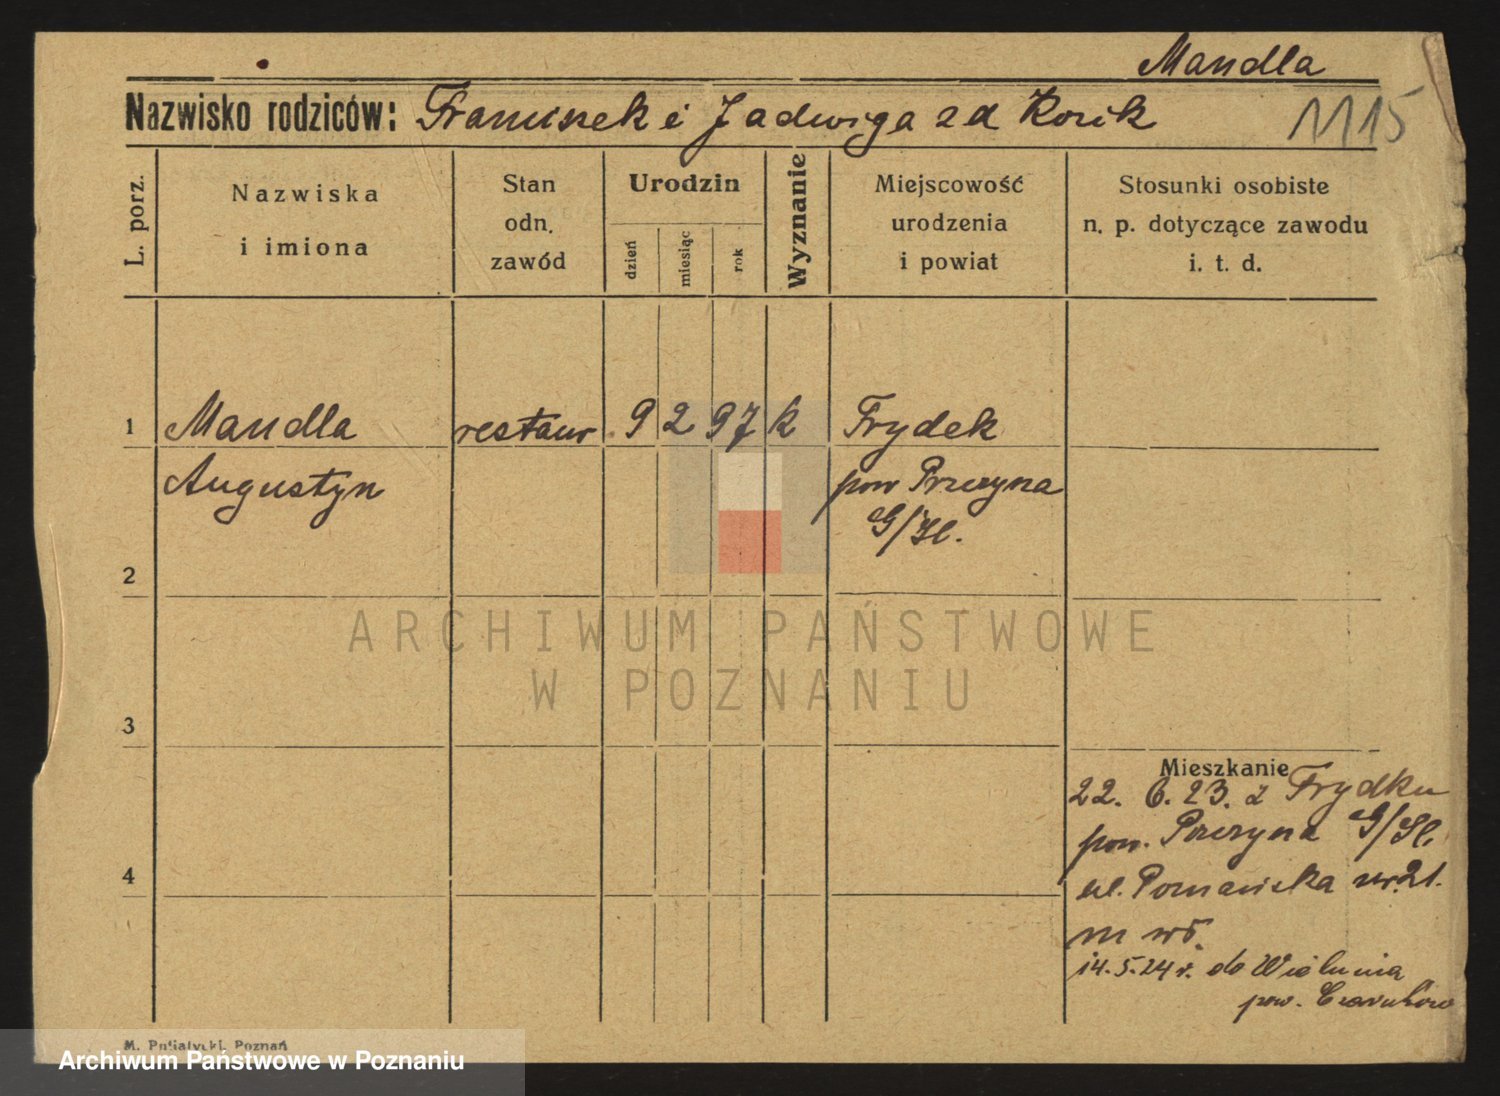 Mandla
Nazwisko rodziców: Franciszek i Jadwiga zd Kozik
1115
L. porz.
Nazwiska
i imiona
Stan
odn.
zawód
Urodzin
dzień
miesiąc
rok
Wyznanie
Miejscowość
urodzenia
i powiat
Stosunki osobiste
n. p. dotyczące zawodu
i. t. d.
1 Mandla restaur. 9 2 97 k Frydek
Augustyn pow Pszczyna
G/Śl.
2
3
4
Mieszkanie
22. 6. 23. z Frydku
pow. Pszczyna G/Śl.
ul. Poznańska nr. 21.
m wł.
14. 5. 24 r. do Wielunia
pow. Czarnków
M. Putiatycki, Poznań
ARCHIWUM PAŃSTWOWE
W POZNANIU
Archiwum Państwowe w Poznaniu